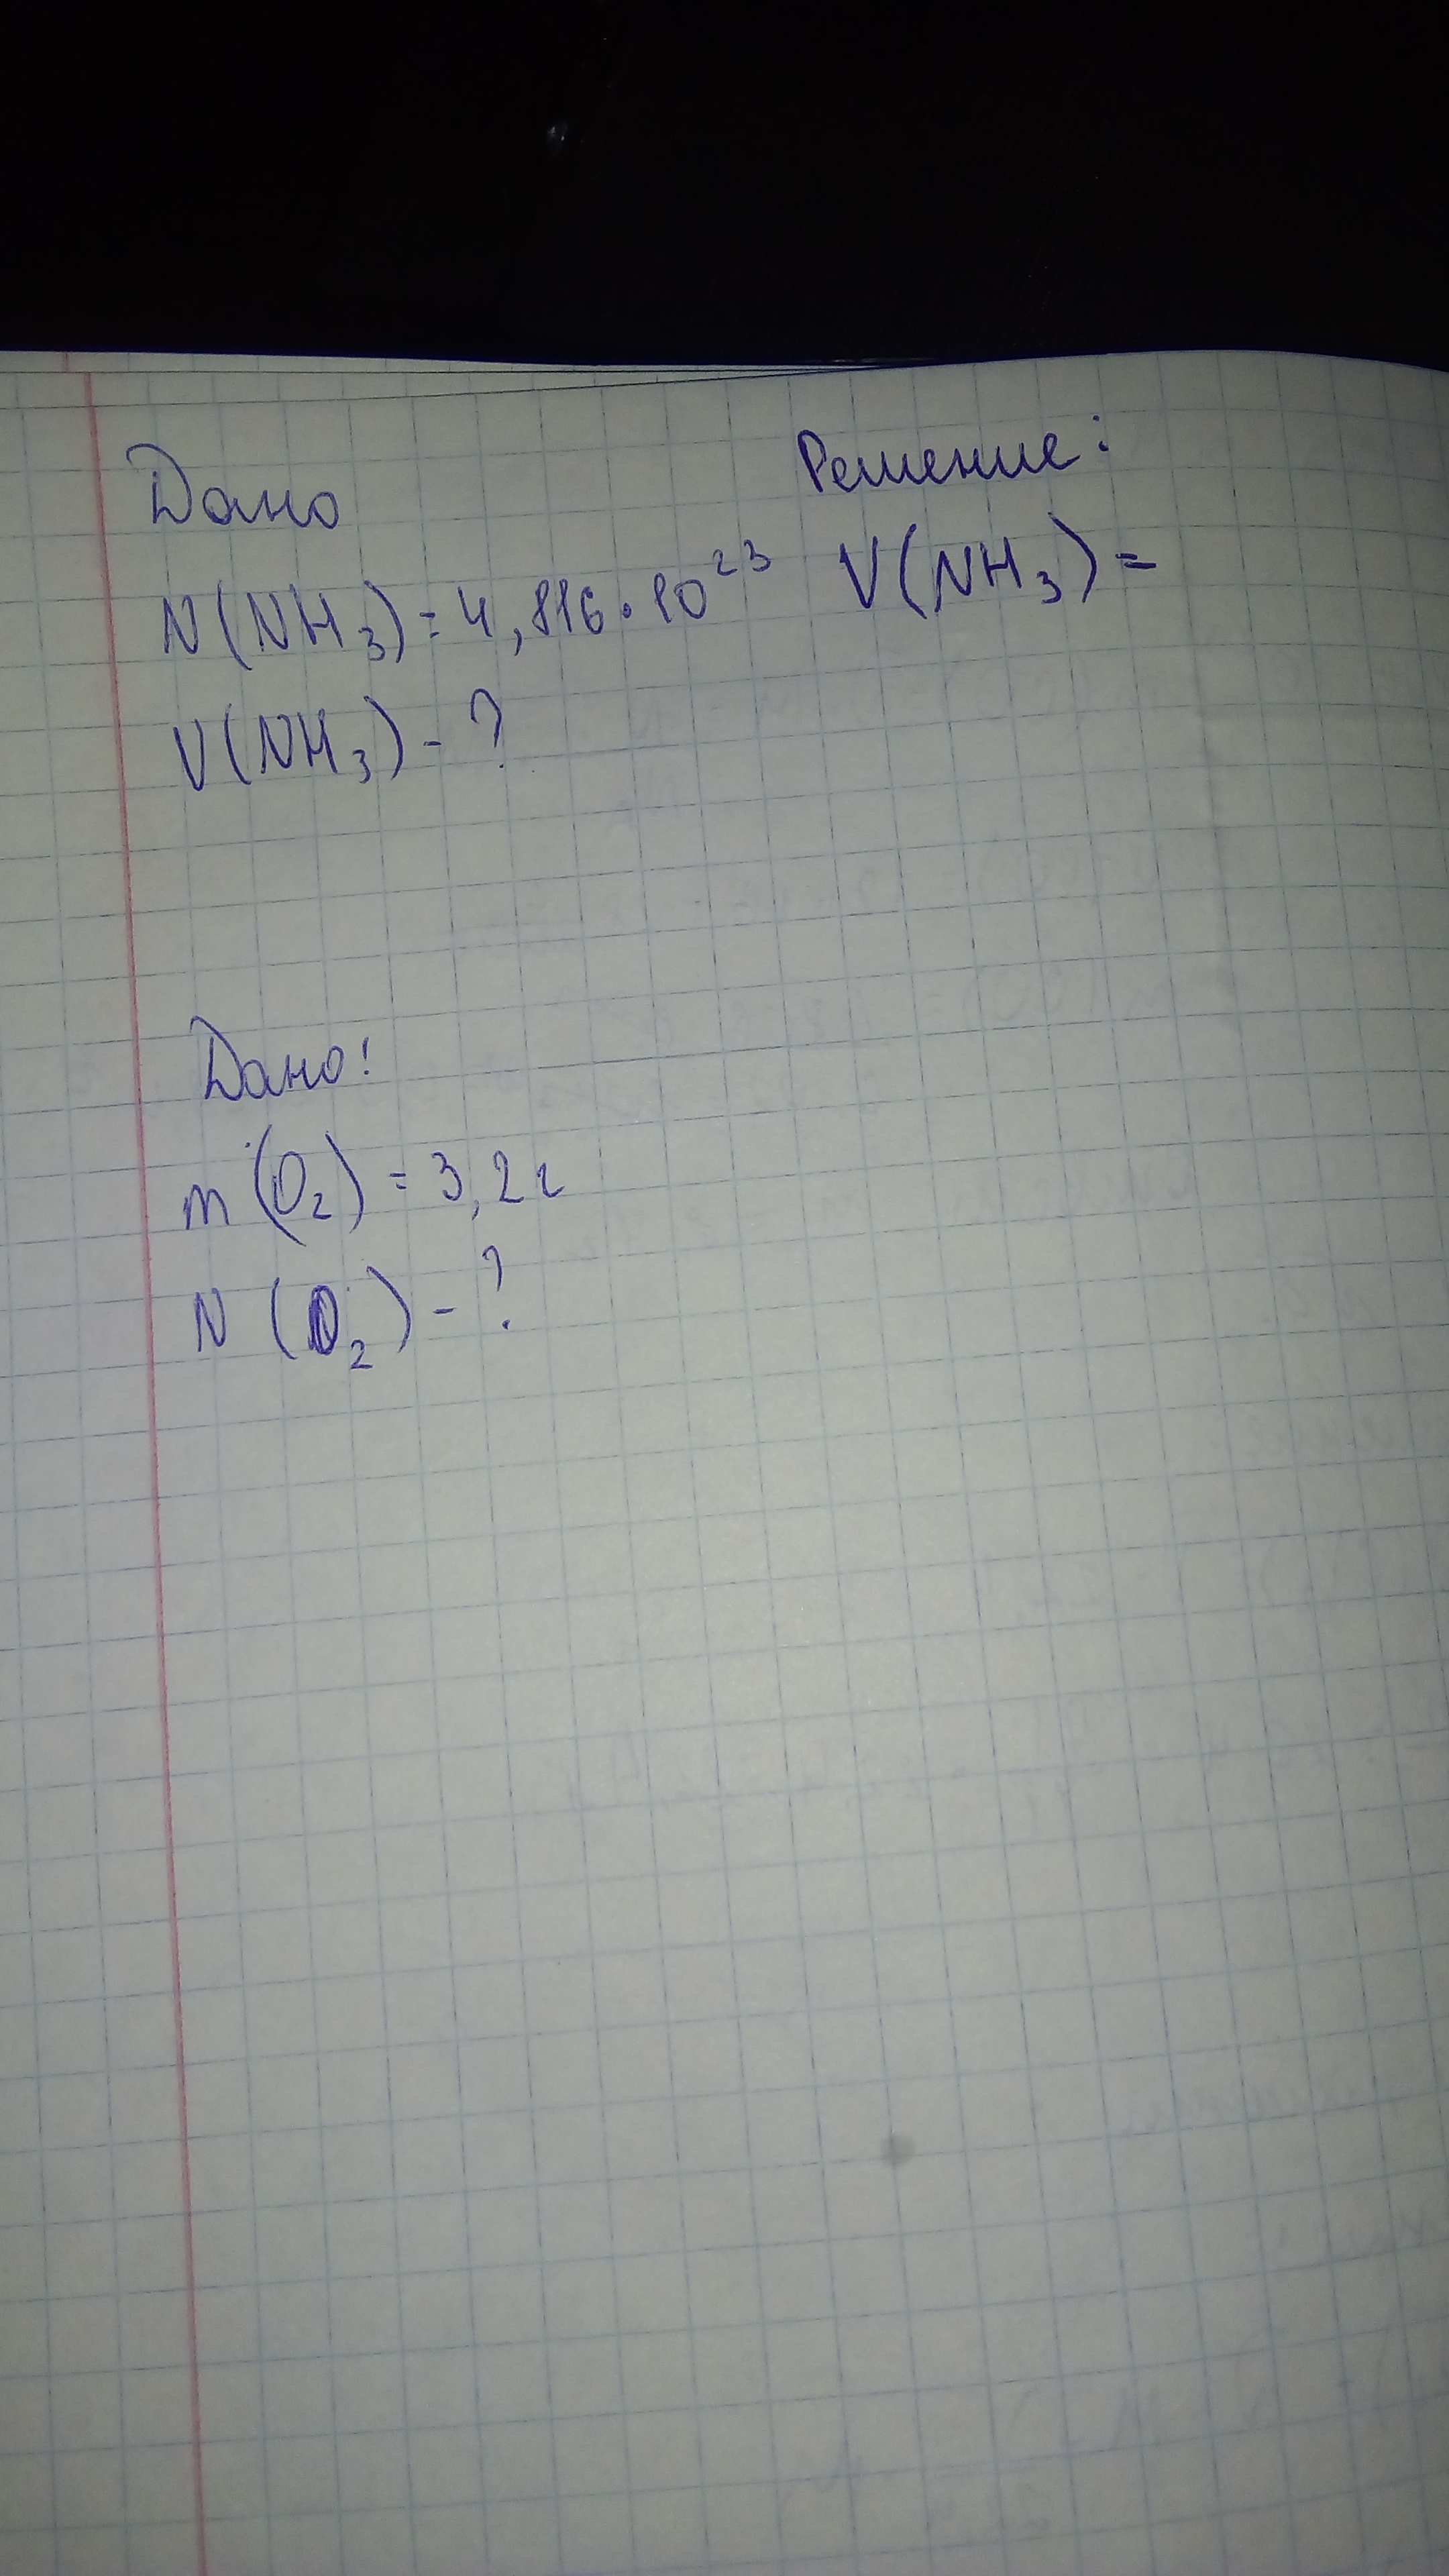 Дано
Решение:
N(NH₃)=4,816·10²³
V(NH₃)=
V(NH₃)-?
Дано:
m(O₂)=3,2г
N(O₂)-?